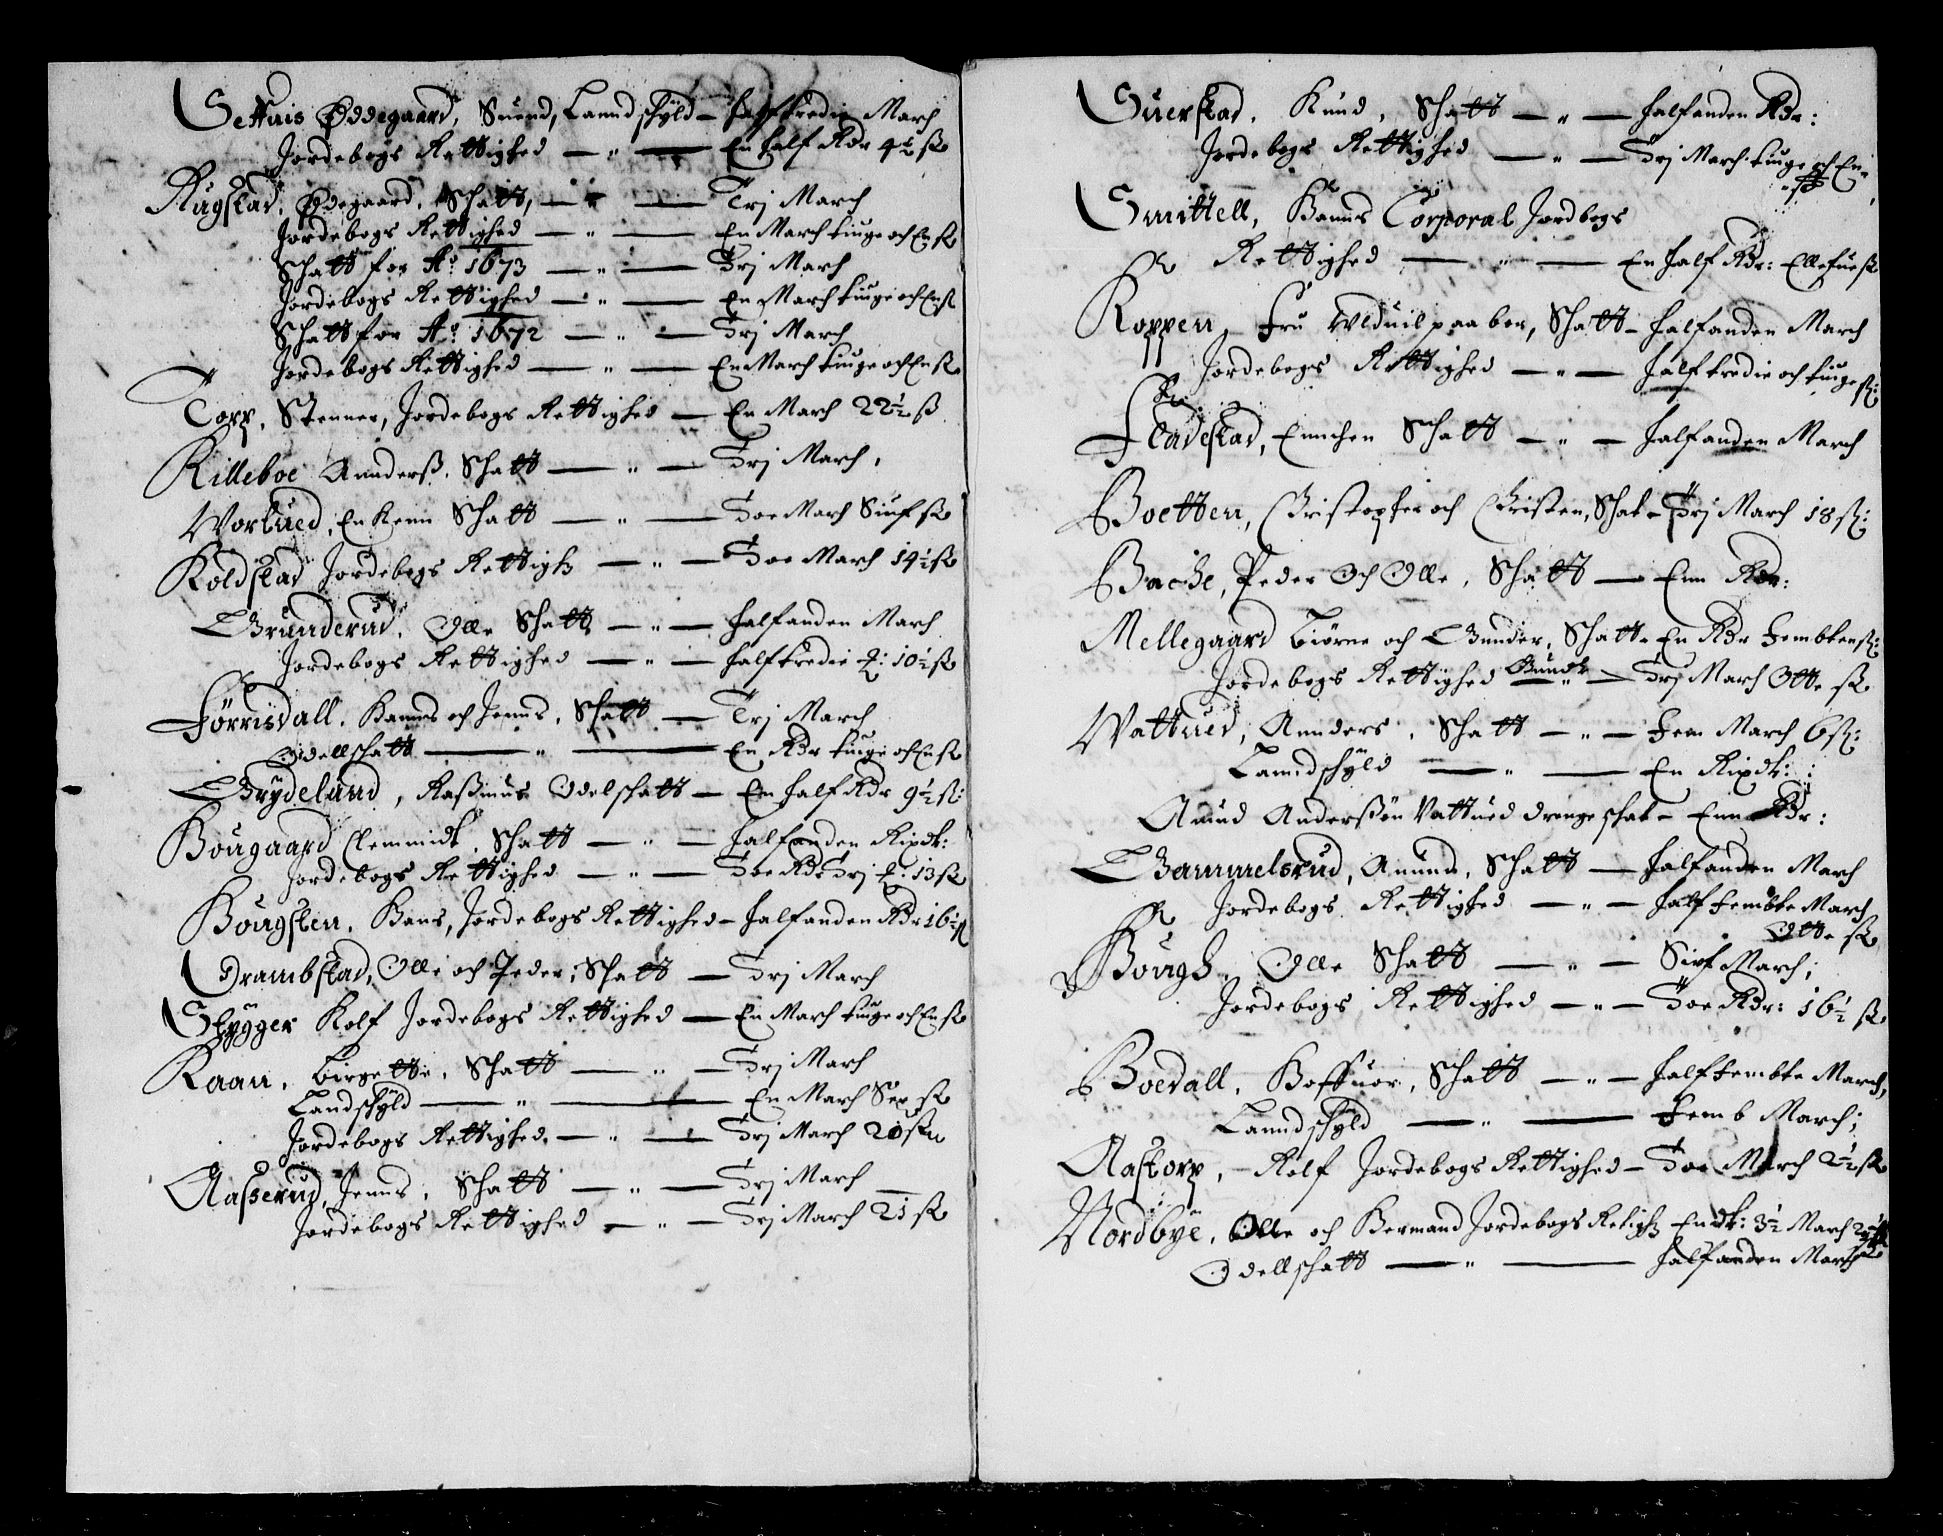 Settuis Øddegaard, Suend, Lanndschyld – halftredie March
Jordebogs Rettighed — " — En half Rdr 4½ sk
Rugstad, Ødegaard, Schatt, — " — Trj March
Jordebogs Rettighed — " — En March tiuge och En sk
Schatt for Ao 1673 — " — Trj March
Jordebogs Rettighed — " — En March tiuge och En sk
Schatt for Ao 1672 — " — Trj March
Jordebogs Rettighed — " — En March tiuge och En sk
Torp, Stenner, Jordebogs Rettighed — En March 22½ sk
Killeboe Annderss, Schatt — " — Trj March,
Wortued, Enkenn Schatt — " — Toe March Siuf sk
Koldstad Jordebogs Rettigh — " — Toe March 14½ sk
Grunderud, Olle Schatt — " — halfanden March
Jordebogs Rettighed — " — halftredie 10½ sk
Førrisdall, Hanns och Jenns, Schatt — Trj March
Odellschatt — " — En Rdr tiuge och En sk
Grydelund, Rassmus Odelschatt — En half Rdr 9½ sk:
Bougaard Clemmidt, Schatt — " — halfanden Rixdr:
Jordebogs Rettighed — " — Toe Rdr Trj 13 sk
Bougsten, Hans, Jordebogs Rettighed – halfanden Rdr 16½ sk
Trambstad, Olle och Peder, Schatt — Trj March
Stygger Rolf Jordebogs Rettighed — En March tiuge och En sk
Raan, Birgette, Schatt — " — Trj March
Landschyld — " — En March Sex sk
Jordebogs Rettighed, — " — Trj March 20 sk
Aasserud, Jenns, Schatt — " — Trj March
Jordebogs Rettighed — " — Trj March 21 sk
Suerstad, Knud, Schatt — " — halfanden Rdr:
Jordebogs Rettighed — " — Trj March tiuge och En
sk
Smittell, Hanns Corporal Jordbogs
Rettighed — " — En half Rdr: Ellefue sk
Koppen, Fru paaboer, Schatt – halfanden March
Jordebogs Rettighed — " — halftredie och tiuge sk:
Fladestad, Ennchen Schatt — " — halfanden March
Boetten, Christopfer och Christen, Schat – Trj March 18 sk:
Bache, Peder Och Olle, Schatt — Enn Rdr:
Mellegaard Biørne och Gunder, Schatt – En Rdr Fembten sk:
Jordebogs Rettighed Gundr — " — Trj March Otte sk
Wattued, Annders, Schatt — " — Fem March 6 sk:
Lanndschyld — " — En Rixdr:
Amund Anderssøn Vattued drenge schat – Enn Rdr:
Gammelsrud, Amund, Schatt — halfanden March
Jordebogs Rettighed — " — half Fembte March
Otte sk
Bough, Olle Schatt — " — Siuf March;
Jordebogs Rettighed — " — Toe Rdr: 16½ sk
Boedall, Hoffuor, Schatt — " — half Fembte March,
Lanndschyld — " — Femb March;
Aastorp, – Rolf Jordebogs Rettighed – Toe March 2½ sk
Nordbye, Olle och Hermand Jordebogs Retigh En dr: 3½ March 2½ sk
Odellschatt — " — halfanden March